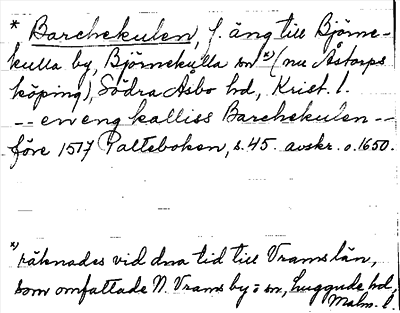 * Barchekulen, f. äng till Björne-
kulla by, Björnekulla sn *) (nu Åstorps
köping), Södra Åsbo hd, Krist. l.
-- en eng kalliss Barchekulen --
före 1517 Palteboken, s. 45. avskr. o. 1650.
*) räknades vid dna tid till Vrams län,
som omfattade N. Vrams by o sn, Luggude hd,
Malm. l.